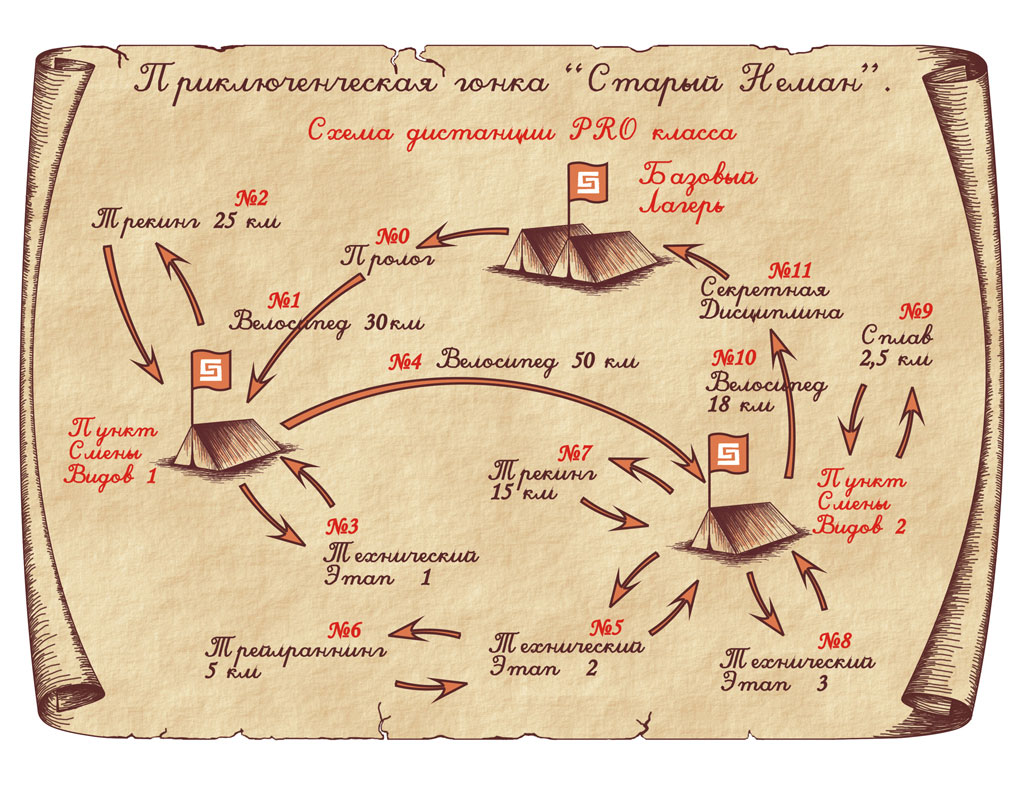 Приключенческая гонка “Старый Неман”.
Схема дистанции PRO класса
Базовый
Лагерь
№0
Пролог
№1
Велосипед 30км
№2
Трекинг 25 км
Пункт
Смены
Видов 1
№3
Технический
Этап 1
№4 Велосипед 50 км
№5
Технический
Этап 2
№6
Трейлраннинг
5 км
№7
Трекинг
15 км
Пункт
Смены
Видов 2
№8
Технический
Этап 3
№9
Сплав
2,5 км
№10
Велосипед
18 км
№11
Секретная
Дисциплина